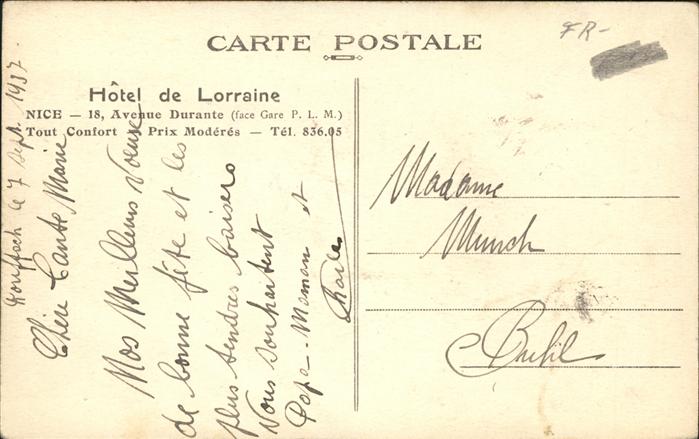 CARTE POSTALE
FR-
Hôtel de Lorraine
NICE — 18, Avenue Durante (face Gare P. L. M.)
Tout Confort — Prix Modérés — Tél. 836.05
le 7 Sept. 1937.
Chère Tante Marie
Nos Meilleurs voeux
de bonne fête et les
plus tendres baisers
Vous souhaitent
Papa-Maman et
Madame
Munch